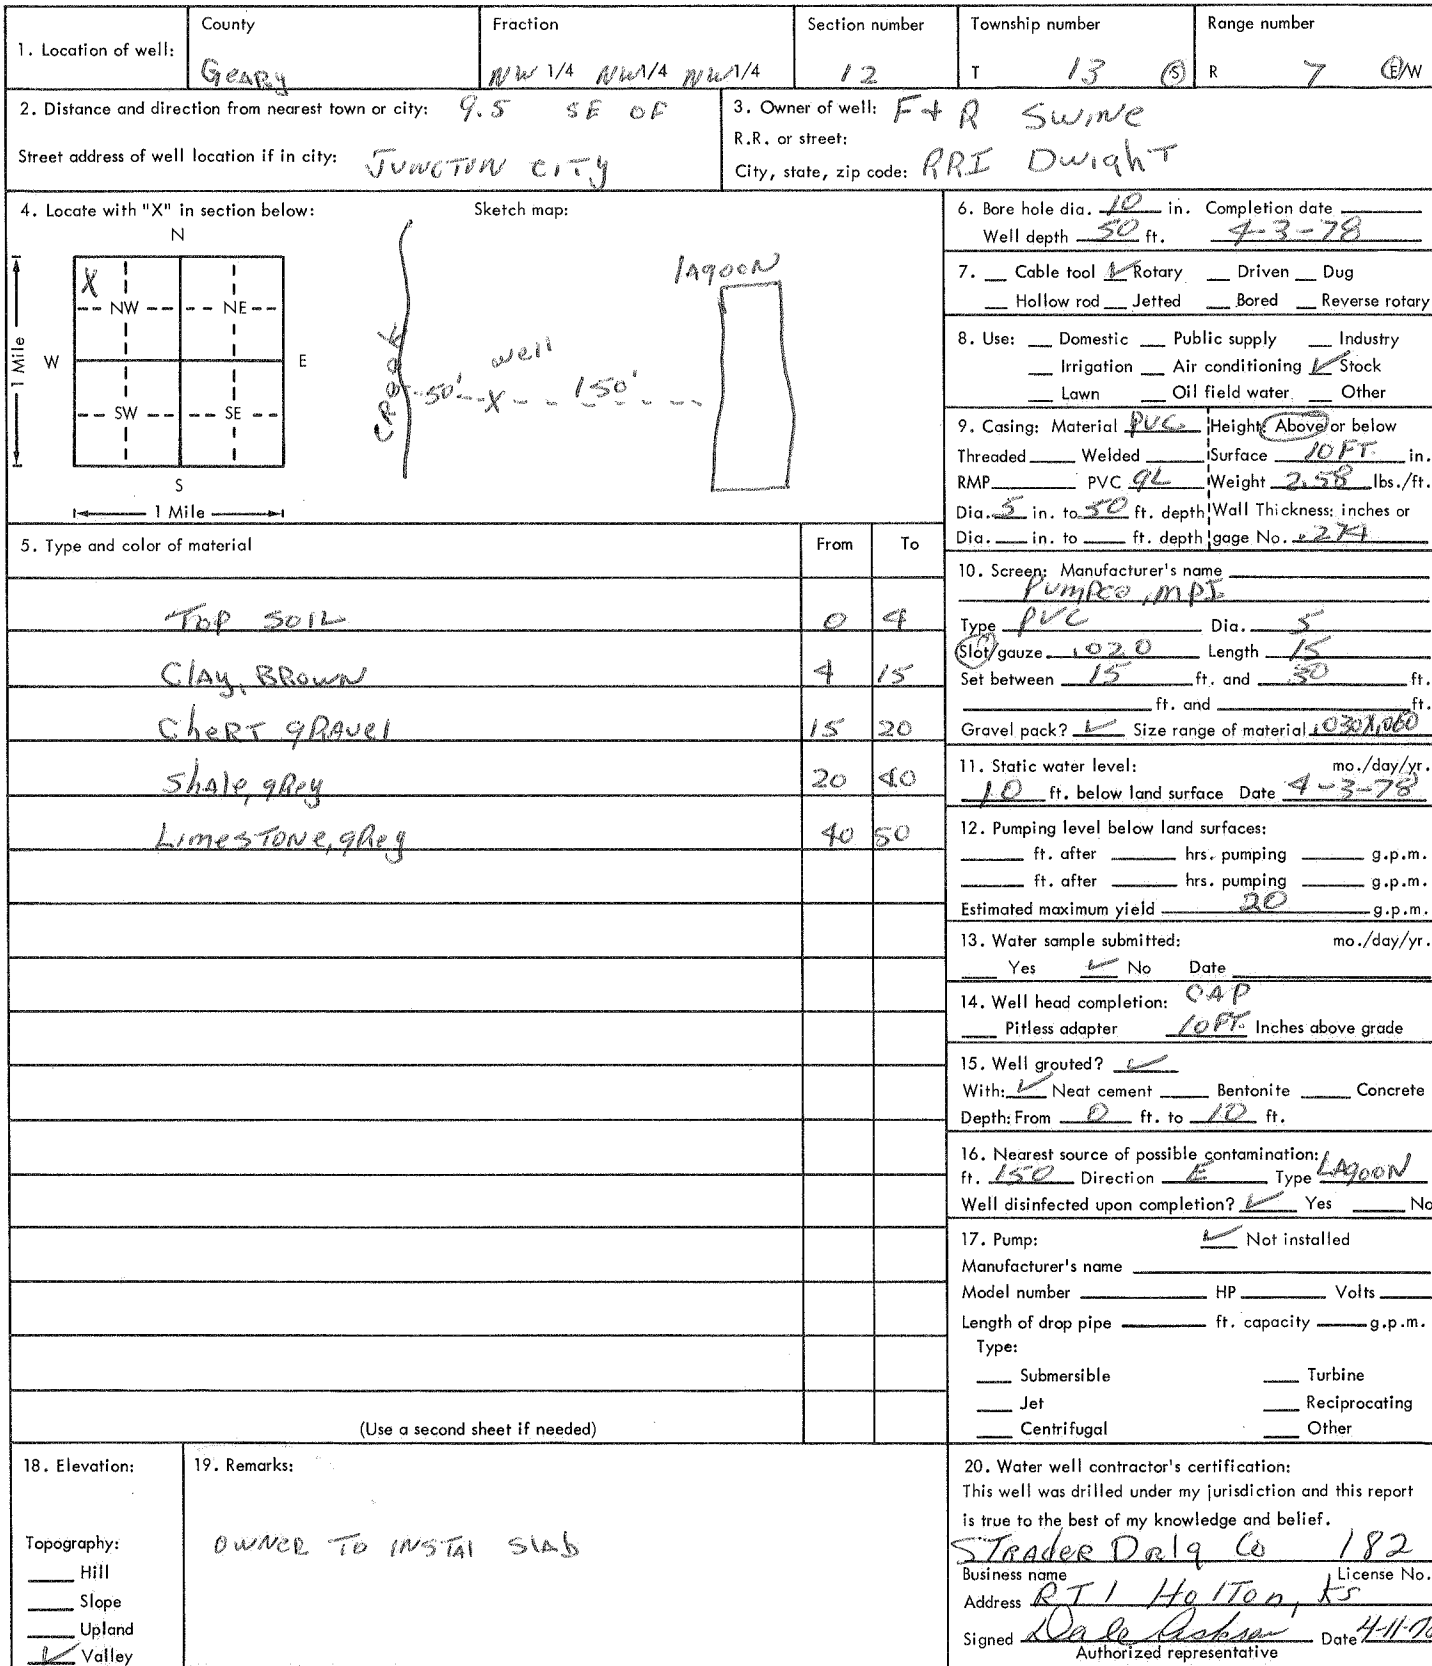 County Fraction Section number Township number Range number
1. Location of well: Geary NW 1/4 NW 1/4 NW 1/4 12 T 13 (S) R 7 (E)/W
2. Distance and direction from nearest town or city: 9.5 SE OF
Street address of well location if in city: JUNCTION CITY
3. Owner of well: F + R SWINE
R.R. or street:
City, state, zip code: RR1 DwighT
4. Locate with "X" in section below: Sketch map:
N
X
NW NE
W E
SW SE
S
1 Mile
1 Mile
lagooN
creek
well
50' X 150'
5. Type and color of material From To
Top SOIL 0 4
Clay, BROWN 4 15
CheRT gRavel 15 20
Shale, gRey 20 40
LimesTONe, gRey 40 50
(Use a second sheet if needed)
6. Bore hole dia. 10 in. Completion date
Well depth 50 ft. 4-3-78
7. Cable tool ✓ Rotary Driven Dug
Hollow rod Jetted Bored Reverse rotary
8. Use: Domestic Public supply Industry
Irrigation Air conditioning ✓ Stock
Lawn Oil field water Other
9. Casing: Material PVC Height: Above or below
Threaded Welded Surface 10 FT. in.
RMP PVC GL Weight 2.58 lbs./ft.
Dia. 5 in. to 50 ft. depth Wall Thickness: inches or
Dia. in. to ft. depth gage No. .274
10. Screen: Manufacturer's name
PUMPCO, MPI
Type PVC Dia. 5
Slot/gauze .020 Length 15
Set between 15 ft. and 30 ft.
ft. and ft.
Gravel pack? ✓ Size range of material .030X.060
11. Static water level: mo./day/yr.
10 ft. below land surface Date 4-3-78
12. Pumping level below land surfaces:
ft. after hrs. pumping g.p.m.
ft. after hrs. pumping g.p.m.
Estimated maximum yield 20 g.p.m.
13. Water sample submitted: mo./day/yr.
Yes ✓ No Date
14. Well head completion: CAP
Pitless adapter 10 FT. Inches above grade
15. Well grouted? ✓
With: ✓ Neat cement Bentonite Concrete
Depth: From 0 ft. to 10 ft.
16. Nearest source of possible contamination:
ft. 150 Direction E Type LAgooN
Well disinfected upon completion? ✓ Yes No
17. Pump: ✓ Not installed
Manufacturer's name
Model number HP Volts
Length of drop pipe ft. capacity g.p.m.
Type:
Submersible Turbine
Jet Reciprocating
Centrifugal Other
18. Elevation:
Topography:
Hill
Slope
Upland
✓ Valley
19. Remarks:
OWNER TO INSTAl Slab
20. Water well contractor's certification:
This well was drilled under my jurisdiction and this report
is true to the best of my knowledge and belief.
STRADER DRlg Co 182
Business name License No.
Address RT 1 HolTon, KS
Signed Dale Date 4-11-78
Authorized representative